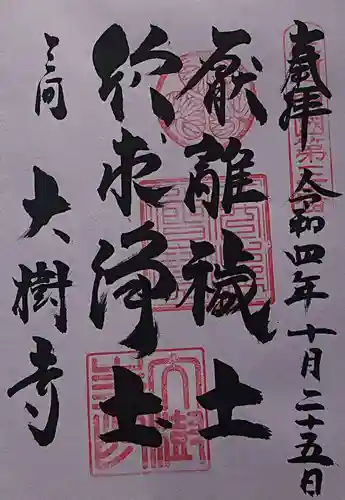 奉拝 令和四年十月二十五日
厭離穢土
欣求浄土
三河
大樹寺